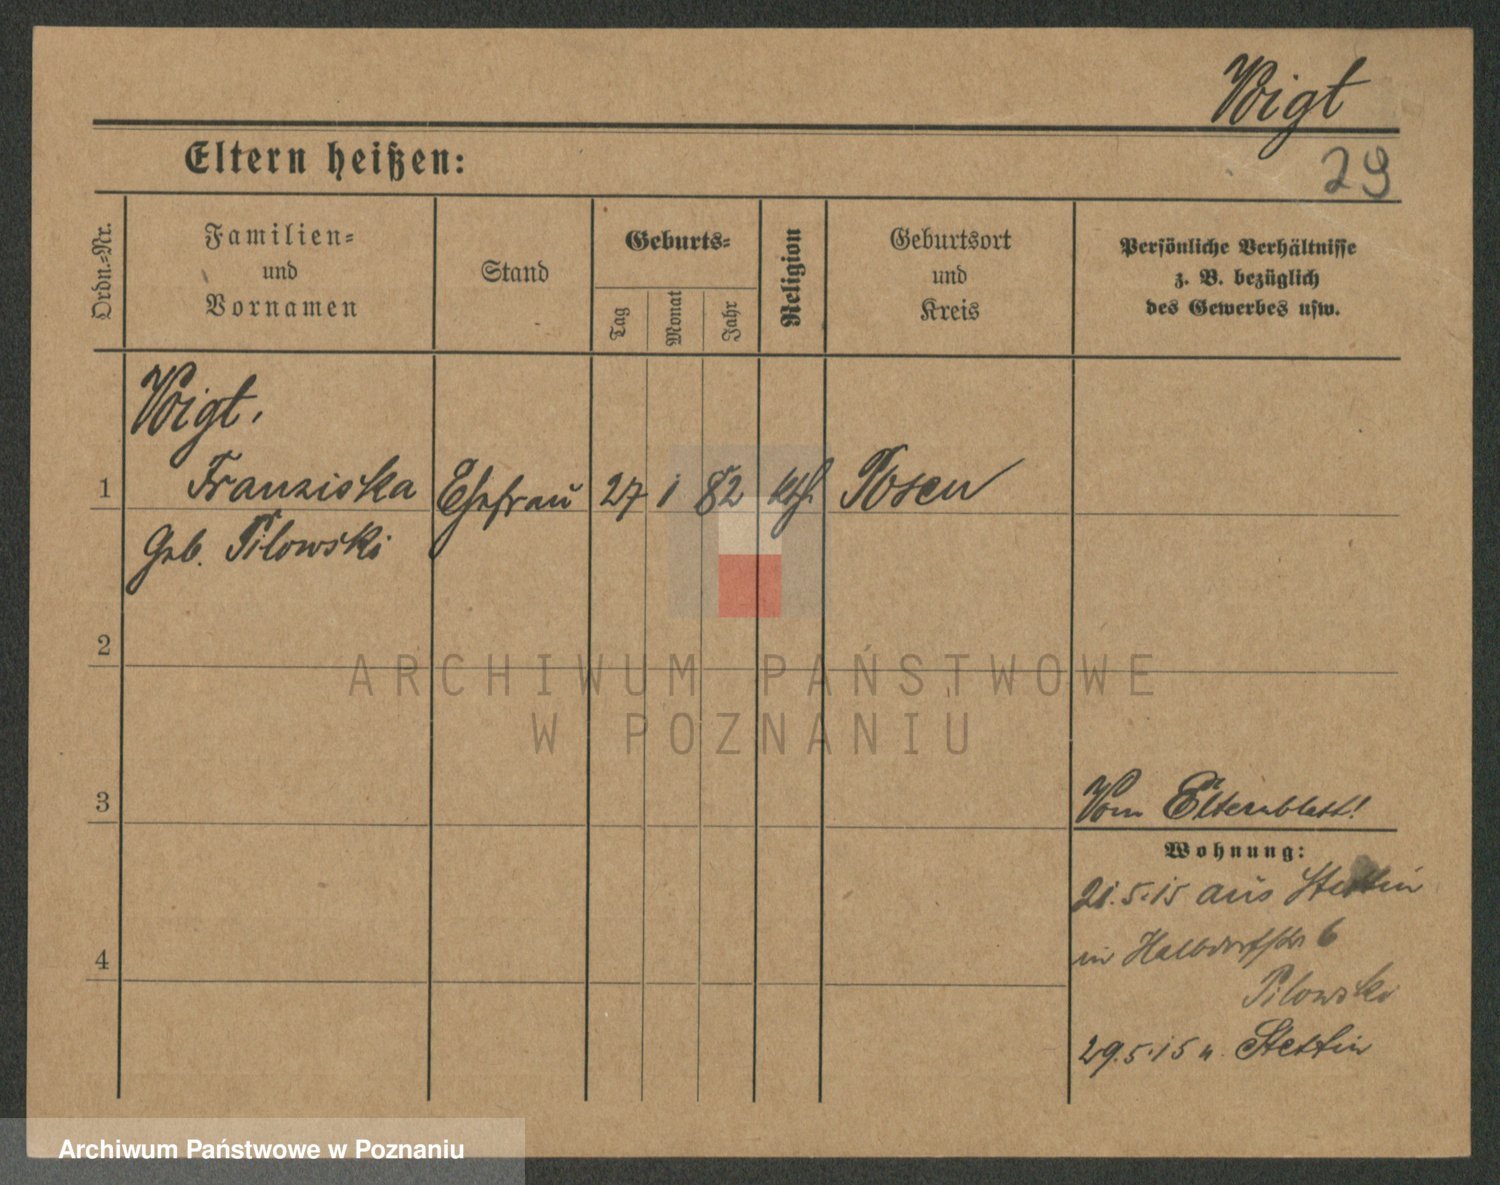 Voigt
29
Eltern heißen:
Ordn.-Nr.
Familien-
und
Vornamen
Stand
Geburts-
Tag
Monat
Jahr
Religion
Geburtsort
und
Kreis
Persönliche Verhältnisse
z. B. bezüglich
des Gewerbes usw.
Voigt.
1 Franziska Ehefrau 27 1 82 kth. Posen
Geb. Pilowski
2
ARCHIWUM PAŃSTWOWE
W POZNANIU
3
Vom Elternblatt!
Wohnung:
21.5.15 aus Stettin
in Halbdorfstr 6
4
Pilowski
29.5.15 n. Stettin
Archiwum Państwowe w Poznaniu